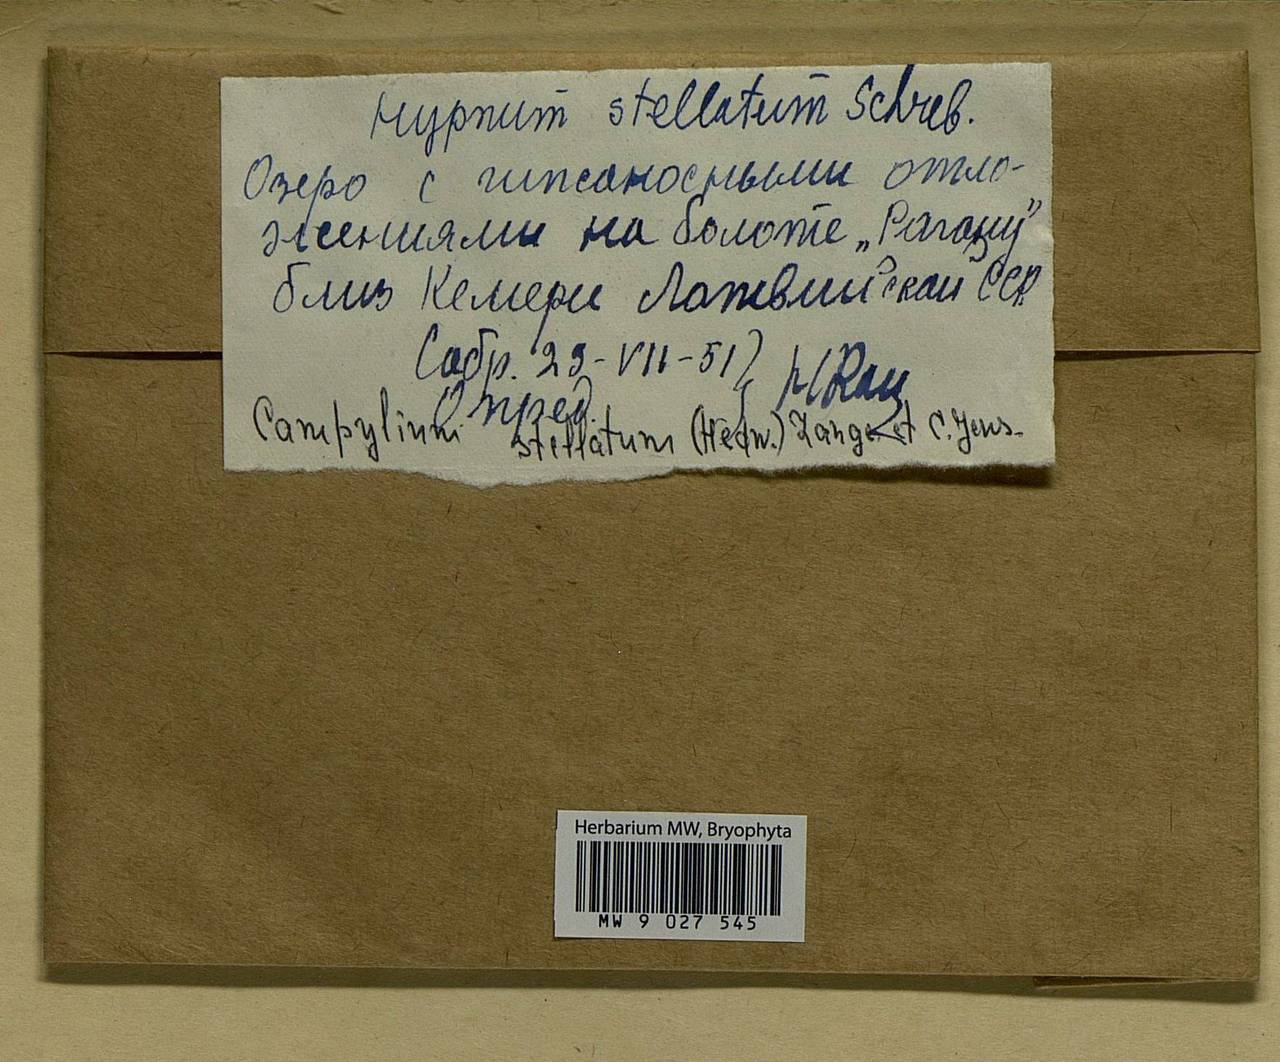 Hypnum stellatum Schreb.
Озеро с гипсаносными отло-
жениями на болоте „Рагану"
близ Кемери Латвийской ССР
Собр. 29-VII-51
Опред.
Campylium stellatum (Hedw.) Lange et C. Jens.
Herbarium MW, Bryophyta
MW 9 027 545